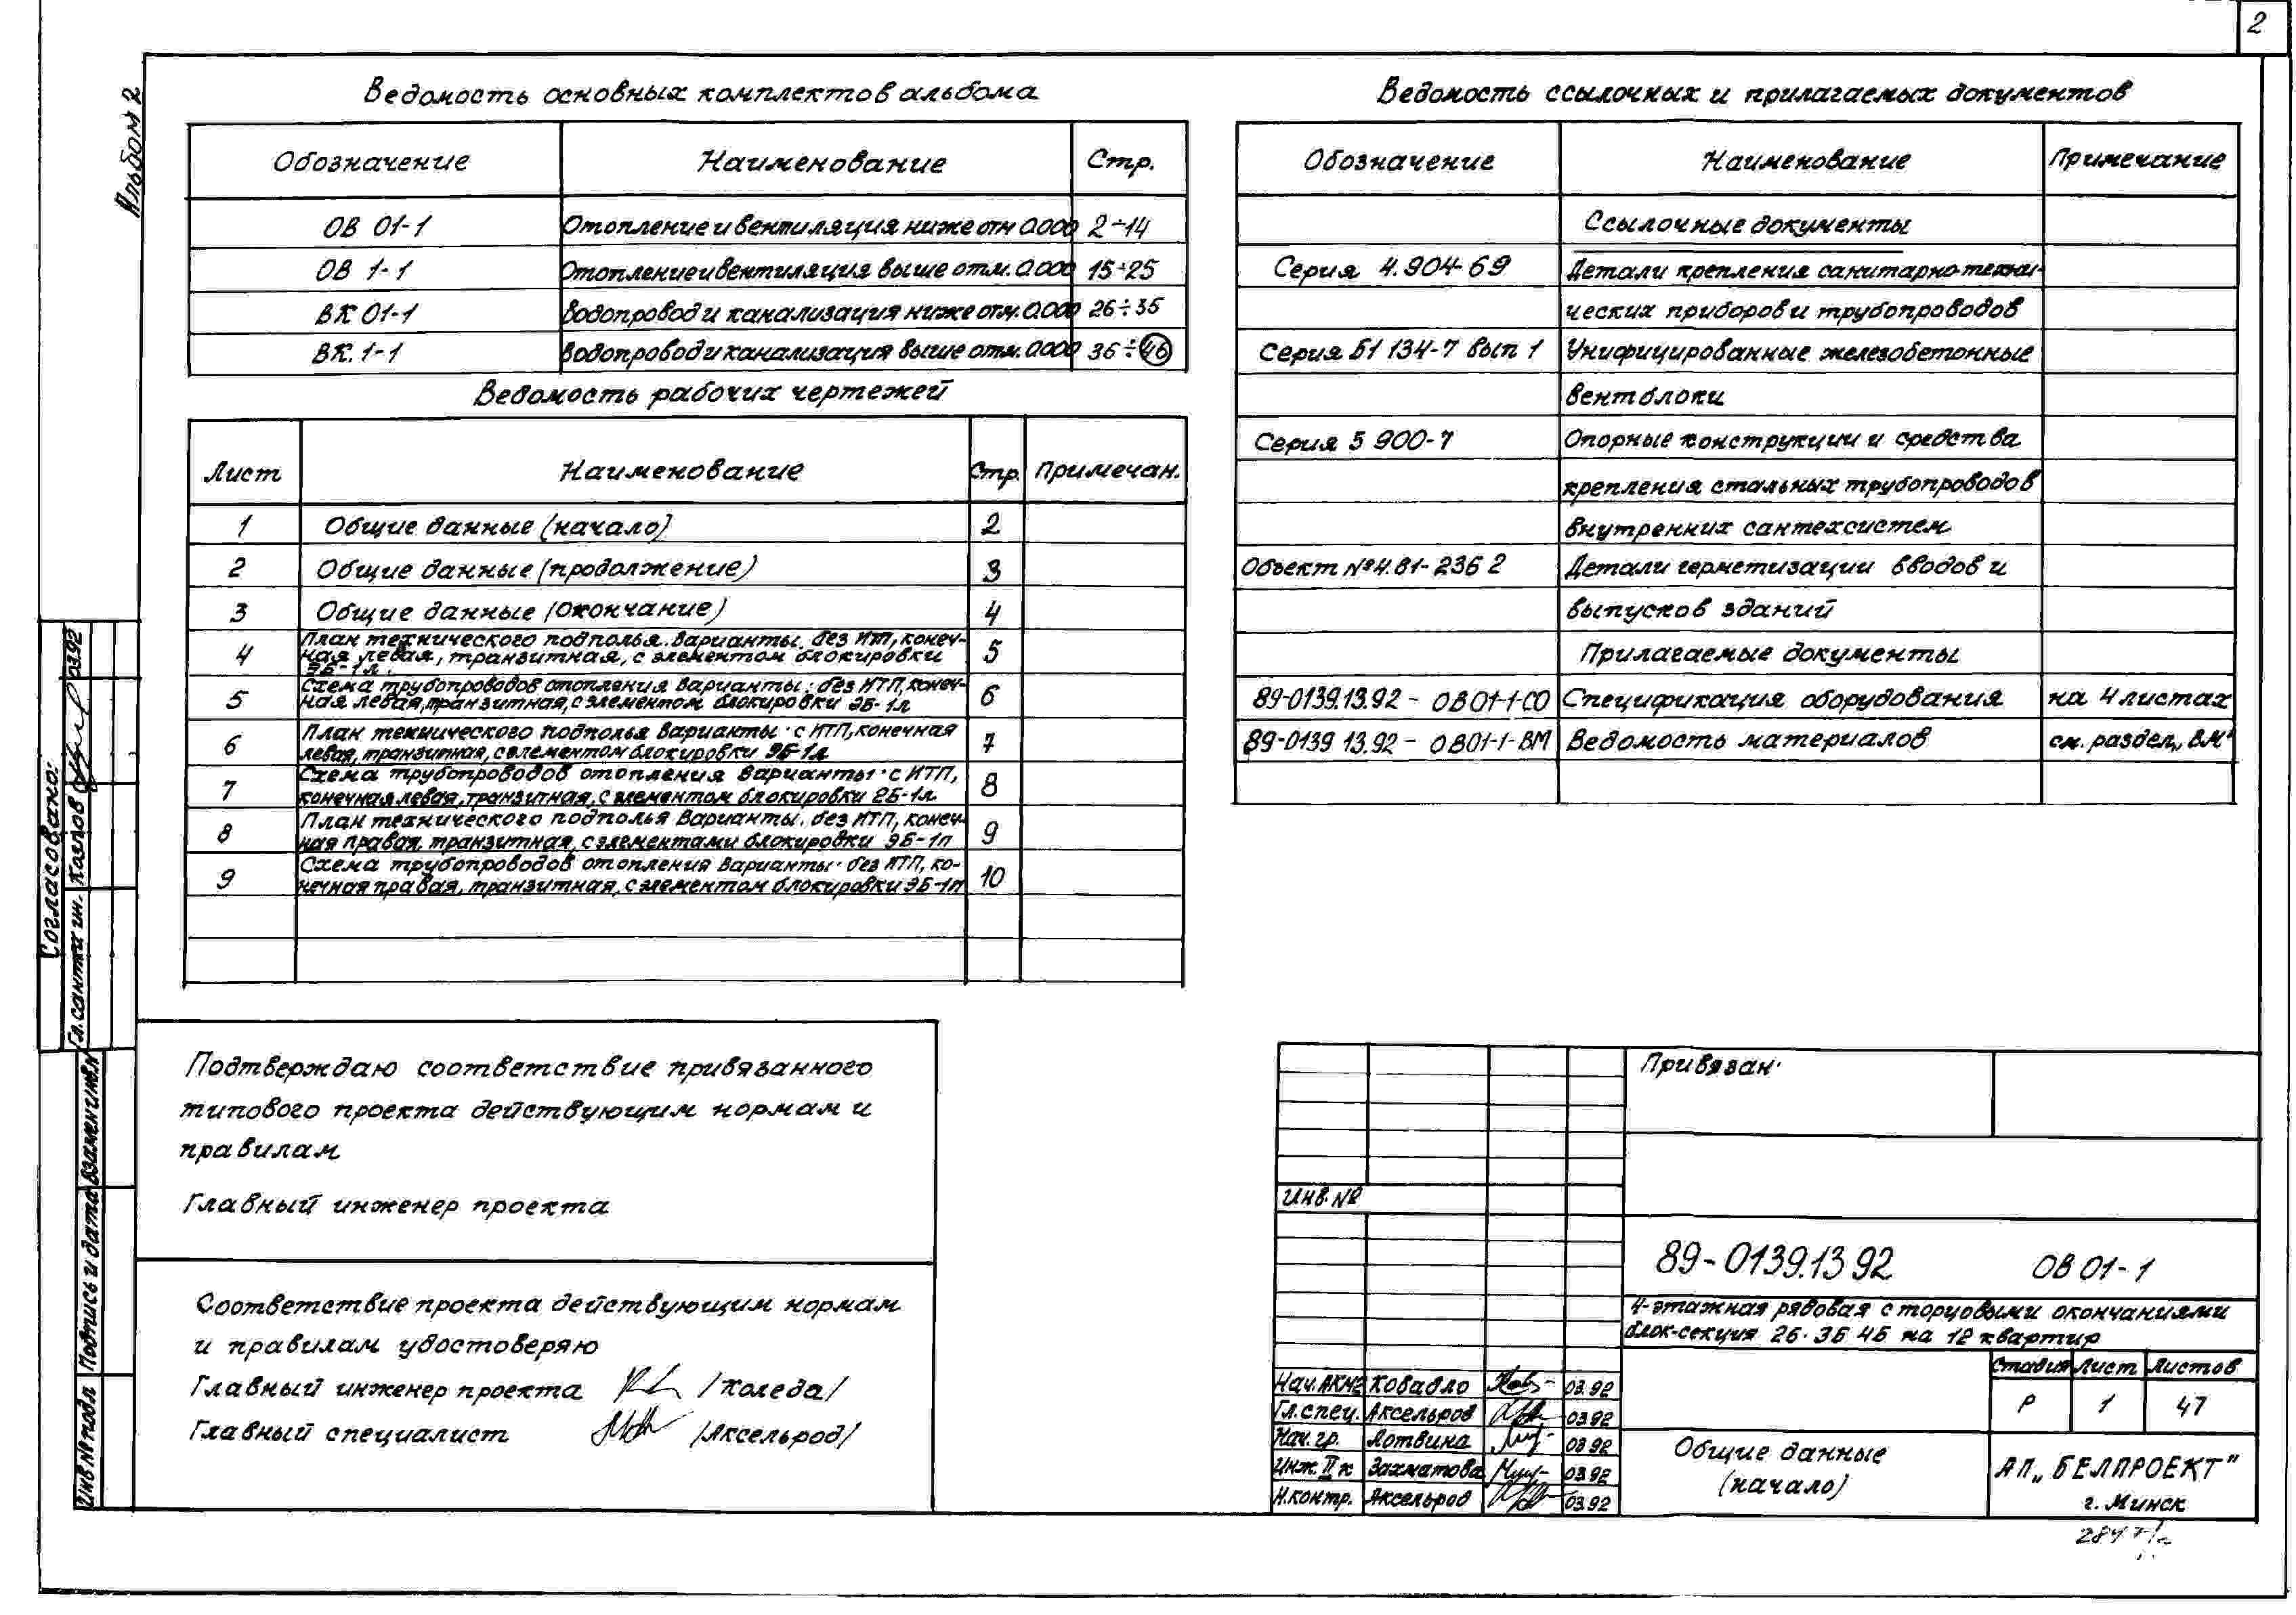 2
Альбом 2
Ведомость основных комплектов альбома
Обозначение Наименование Стр.
ОВ 01-1 Отопление и вентиляция ниже отм 0.000 2÷14
ОВ 1-1 Отопление и вентиляция выше отм. 0.000 15÷25
ВК 01-1 Водопровод и канализация ниже отм. 0.000 26÷35
ВК. 1-1 Водопровод и канализация выше отм. 0.000 36÷46
Ведомость рабочих чертежей
Лист Наименование Стр. Примечан.
1 Общие данные (начало) 2
2 Общие данные (продолжение) 3
3 Общие данные (окончание) 4
4 План технического подполья. Варианты: без ИТП, конеч-
ная левая, транзитная, с элементом блокировки
ЭБ-1л. 5
5 Схема трубопроводов отопления Варианты: без ИТП, конеч-
ная левая, транзитная, с элементом блокировки ЭБ-1л 6
6 План технического подполья Варианты: с ИТП, конечная
левая, транзитная, с элементом блокировки ЭБ-1л 7
7 Схема трубопроводов отопления Варианты: с ИТП,
конечная левая, транзитная, с элементом блокировки 2Б-1л. 8
8 План технического подполья Варианты: без ИТП, конеч-
ная правая, транзитная, с элементами блокировки ЭБ-1п 9
9 Схема трубопроводов отопления Варианты: без ИТП, ко-
нечная правая, транзитная, с элементом блокировки ЭБ-1п 10
Ведомость ссылочных и прилагаемых документов
Обозначение Наименование Примечание
Ссылочные документы
Серия 4.904-69 Детали крепления санитарно-техни-
ческих приборов и трубопроводов
Серия Б1 134-7 вып 1 Унифицированные железобетонные
вентблоки
Серия 5 900-7 Опорные конструкции и средства
крепления стальных трубопроводов
внутренних сантехсистем
Объект №4.81-236 2 Детали герметизации вводов и
выпусков зданий
Прилагаемые документы
89-0139.13.92 - ОВ01-1-СО Спецификация оборудования на 4 листах
89-0139 13.92 - ОВ01-1-ВМ Ведомость материалов см. раздел „ВМ"
Согласовано:
Гл. сантехн. Козлов 03.92
Взамен инв.№
Подпись и дата
Инв № подл
Подтверждаю соответствие привязанного
типового проекта действующим нормам и
правилам
Главный инженер проекта
Соответствие проекта действующим нормам
и правилам удостоверяю
Главный инженер проекта /Коледа/
Главный специалист /Аксельрод/
Привязан:
Инв. №
89-0139.13 92 ОВ 01-1
4-этажная рядовая с торцовыми окончаниями
блок-секция 2Б. 3Б 4Б на 12 квартир
Стадия Лист Листов
Р 1 47
Нач. АКМ2 Ковадло 03.92
Гл. спец. Аксельрод 03.92
Нач. гр. Лотвина 03 92
Инж. II к Захматова 03.92
Н.контр. Аксельрод 03.92
Общие данные
(начало)
АП „БЕЛПРОЕКТ"
г. Минск